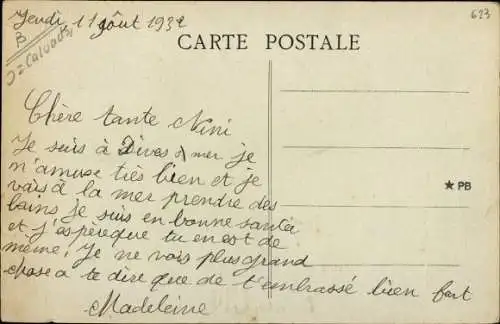 Jeudi, 11 août 1932
623
B
J=Calvados
CARTE POSTALE
Chère tante Nini
Je suis à Dives s/ mer je
m'amuse très bien et je
vais à la mer prendre des
bains je suis en bonne santée
et j'espèreque tu en est de
même, Je ne vois plus grand
chose a te dire que de t'embrassé bien fort
Madeleine
★ PB